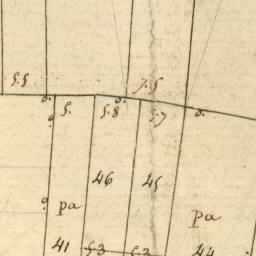 5.5 7.5
5. 5.8 5.7
46 45
pa pa
41 53 52 44